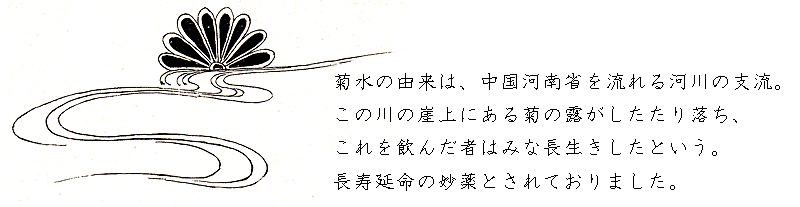 菊水の由来は、中国河南省を流れる河川の支流。
この川の崖上にある菊の露がしたたり落ち、
これを飲んだ者はみな長生きしたという。
長寿延命の妙薬とされておりました。